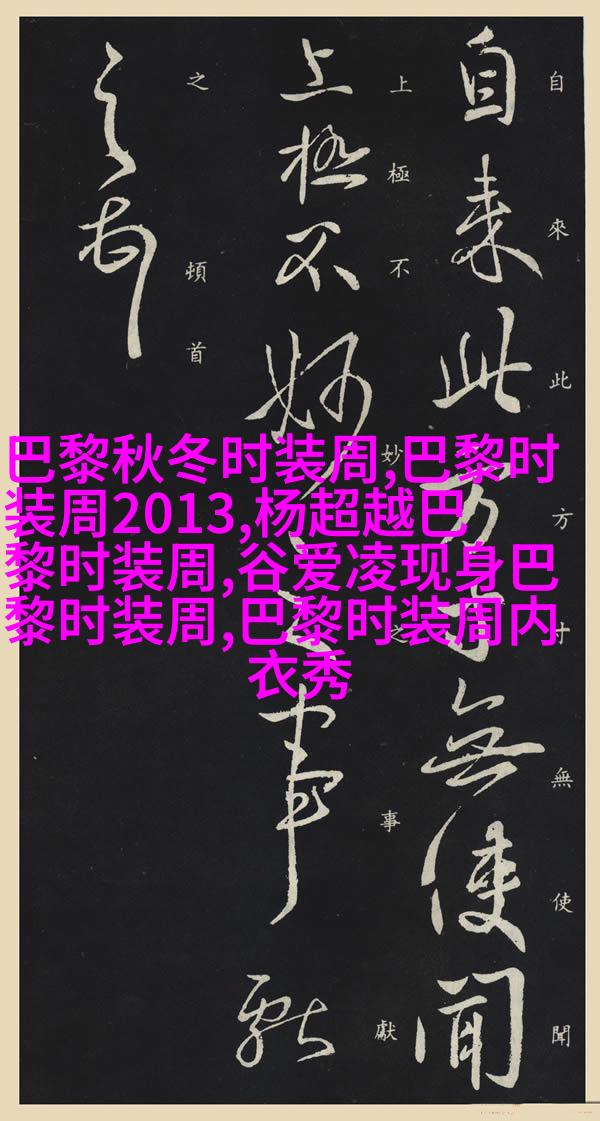 自來此方寸無使聞
上極不妙之事獻
之頓首
巴黎秋冬时装周,巴黎时
装周2013,杨超越巴
黎时装周,谷爱凌现身巴
黎时装周,巴黎时装周内
衣秀